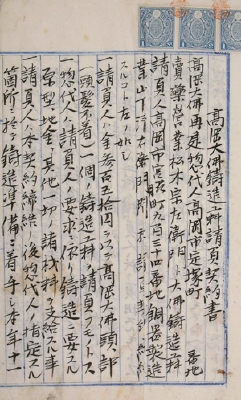 高岡大佛鋳造工料請負契約書
高岡大佛再建惣代人高岡市定塚町 番地
賣藥營業松木宗左衛門ト大佛鋳造工料
請負人高岡市宮 町九百三十四番地銅器製造
業 トノ 契約
スルコト左ノ如シ
一請負人ハ金 百五拾円ヲ以テ高岡大佛頭部
(頭髪不着)一個ノ鋳造工料ヲ請負フモノトス
一惣代人ハ請負人ノ要求ニ依リ鋳造ニ要スル
原型地金其他一切ノ諸材料ヲ支給スル事
一請負人ハ本契約締結ノ後惣代人ノ指定スル
箇所ニ於テ鋳造準備ニ着手シ本年十一